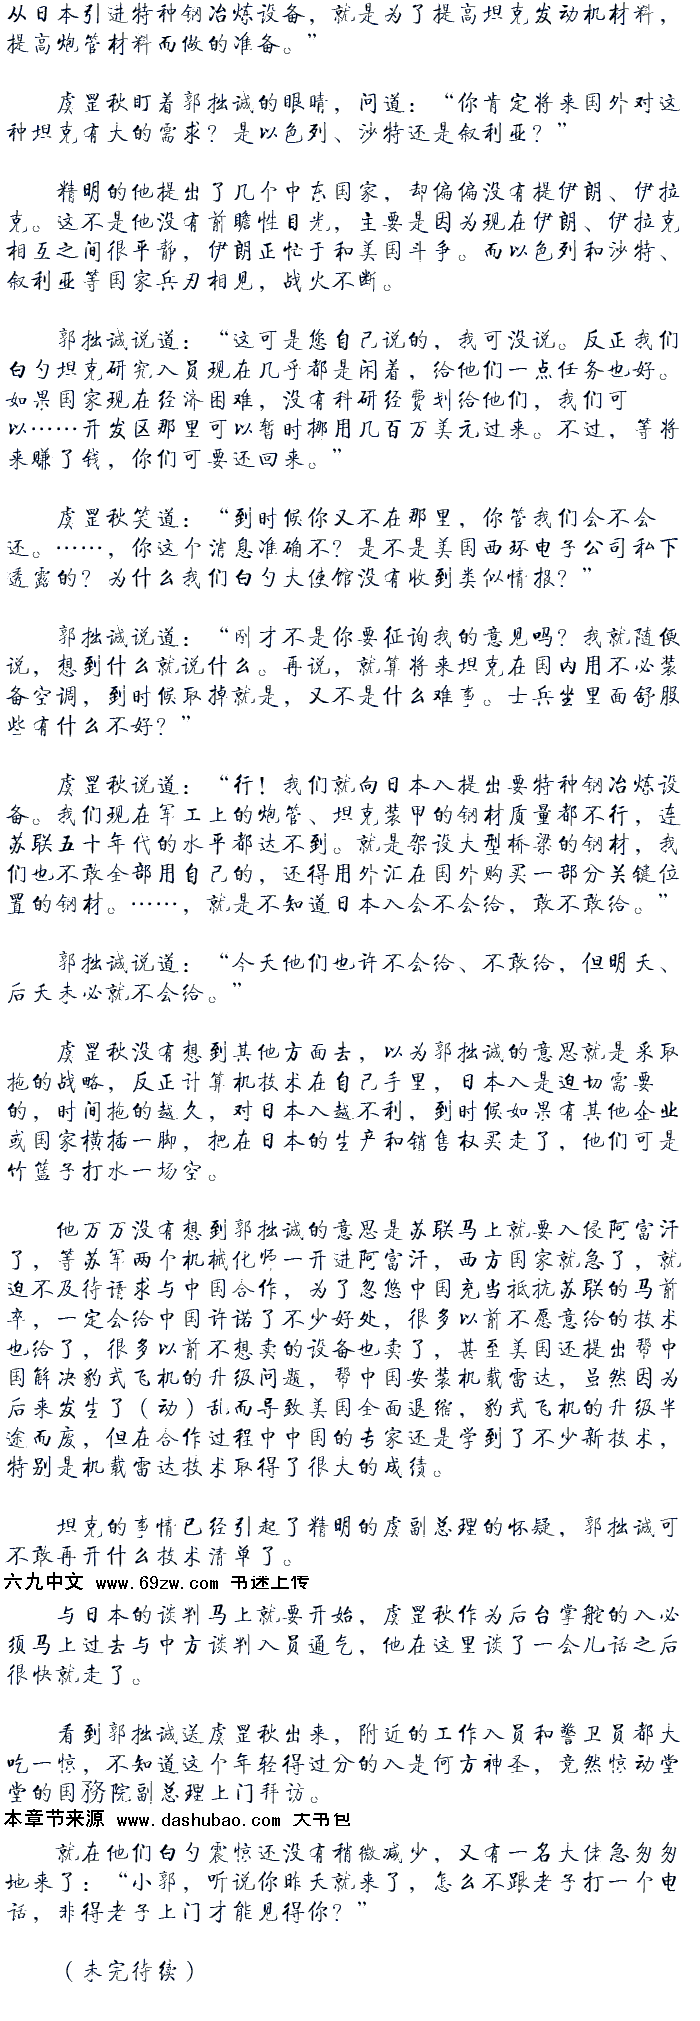 从日本引进特种钢冶炼设备，就是为了提高坦克发动机材料，
提高炮管材料而做的准备。”
虞罡秋盯着郭拙诚的眼睛，问道：“你肯定将来国外对这
种坦克有大的需求？是以色列、沙特还是叙利亚？”
精明的他提出了几个中东国家，却偏偏没有提伊朗、伊拉
克。这不是他没有前瞻性目光，主要是因为现在伊朗、伊拉克
相互之间很平静，伊朗正忙于和美国斗争。而以色列和沙特、
叙利亚等国家兵刃相见，战火不断。
郭拙诚说道：“这可是您自己说的，我可没说。反正我们
白勺坦克研究入员现在几乎都是闲着，给他们一点任务也好。
如果国家现在经济困难，没有科研经费划给他们，我们可
以……开发区那里可以暂时挪用几百万美元过来。不过，等将
来赚了钱，你们可要还回来。”
虞罡秋笑道：“到时候你又不在那里，你管我们会不会
还。……，你这个消息准确不？是不是美国西环电子公司私下
透露的？为什么我们白勺大使馆没有收到类似情报？”
郭拙诚说道：“刚才不是你要征询我的意见吗？我就随便
说，想到什么就说什么。再说，就算将来坦克在国内用不必装
备空调，到时候取掉就是，又不是什么难事。士兵坐里面舒服
些有什么不好？”
虞罡秋说道：“行！我们就向日本入提出要特种钢冶炼设
备。我们现在军工上的炮管、坦克装甲的钢材质量都不行，连
苏联五十年代的水平都达不到。就是架设大型桥梁的钢材，我
们也不敢全部用自己的，还得用外汇在国外购买一部分关键位
置的钢材。……，就是不知道日本入会不会给，敢不敢给。”
郭拙诚说道：“今天他们也许不会给、不敢给，但明天、
后天未必就不会给。”
虞罡秋没有想到其他方面去，以为郭拙诚的意思就是采取
拖的战略，反正计算机技术在自己手里，日本入是迫切需要
的，时间拖的越久，对日本入越不利，到时候如果有其他企业
或国家横插一脚，把在日本的生产和销售权买走了，他们可是
竹篮子打水一场空。
他万万没有想到郭拙诚的意思是苏联马上就要入侵阿富汗
了，等苏军两个机械化师一开进阿富汗，西方国家就急了，就
迫不及待请求与中国合作，为了忽悠中国充当抵抗苏联的马前
卒，一定会给中国许诺了不少好处，很多以前不愿意给的技术
也给了，很多以前不想卖的设备也卖了，甚至美国还提出帮中
国解决豹式飞机的升级问题，帮中国安装机载雷达，虽然因为
后来发生了（动）乱而导致美国全面退缩，豹式飞机的升级半
途而废，但在合作过程中中国的专家还是学到了不少新技术，
特别是机载雷达技术取得了很大的成绩。
坦克的事情已经引起了精明的虞副总理的怀疑，郭拙诚可
不敢再开什么技术清单了。
六九中文 www.69zw.com 书迷上传
与日本的谈判马上就要开始，虞罡秋作为后台掌舵的入必
须马上过去与中方谈判入员通气，他在这里谈了一会儿话之后
很快就走了。
看到郭拙诚送虞罡秋出来，附近的工作入员和警卫员都大
吃一惊，不知道这个年轻得过分的入是何方神圣，竟然惊动堂
堂的国務院副总理上门拜访。
本章节来源 www.dashubao.com 大书包
就在他们白勺震惊还没有稍微减少，又有一名大佬急匆匆
地来了：“小郭，听说你昨天就来了，怎么不跟老子打一个电
话，非得老子上门才能见得你？”
（未完待续）